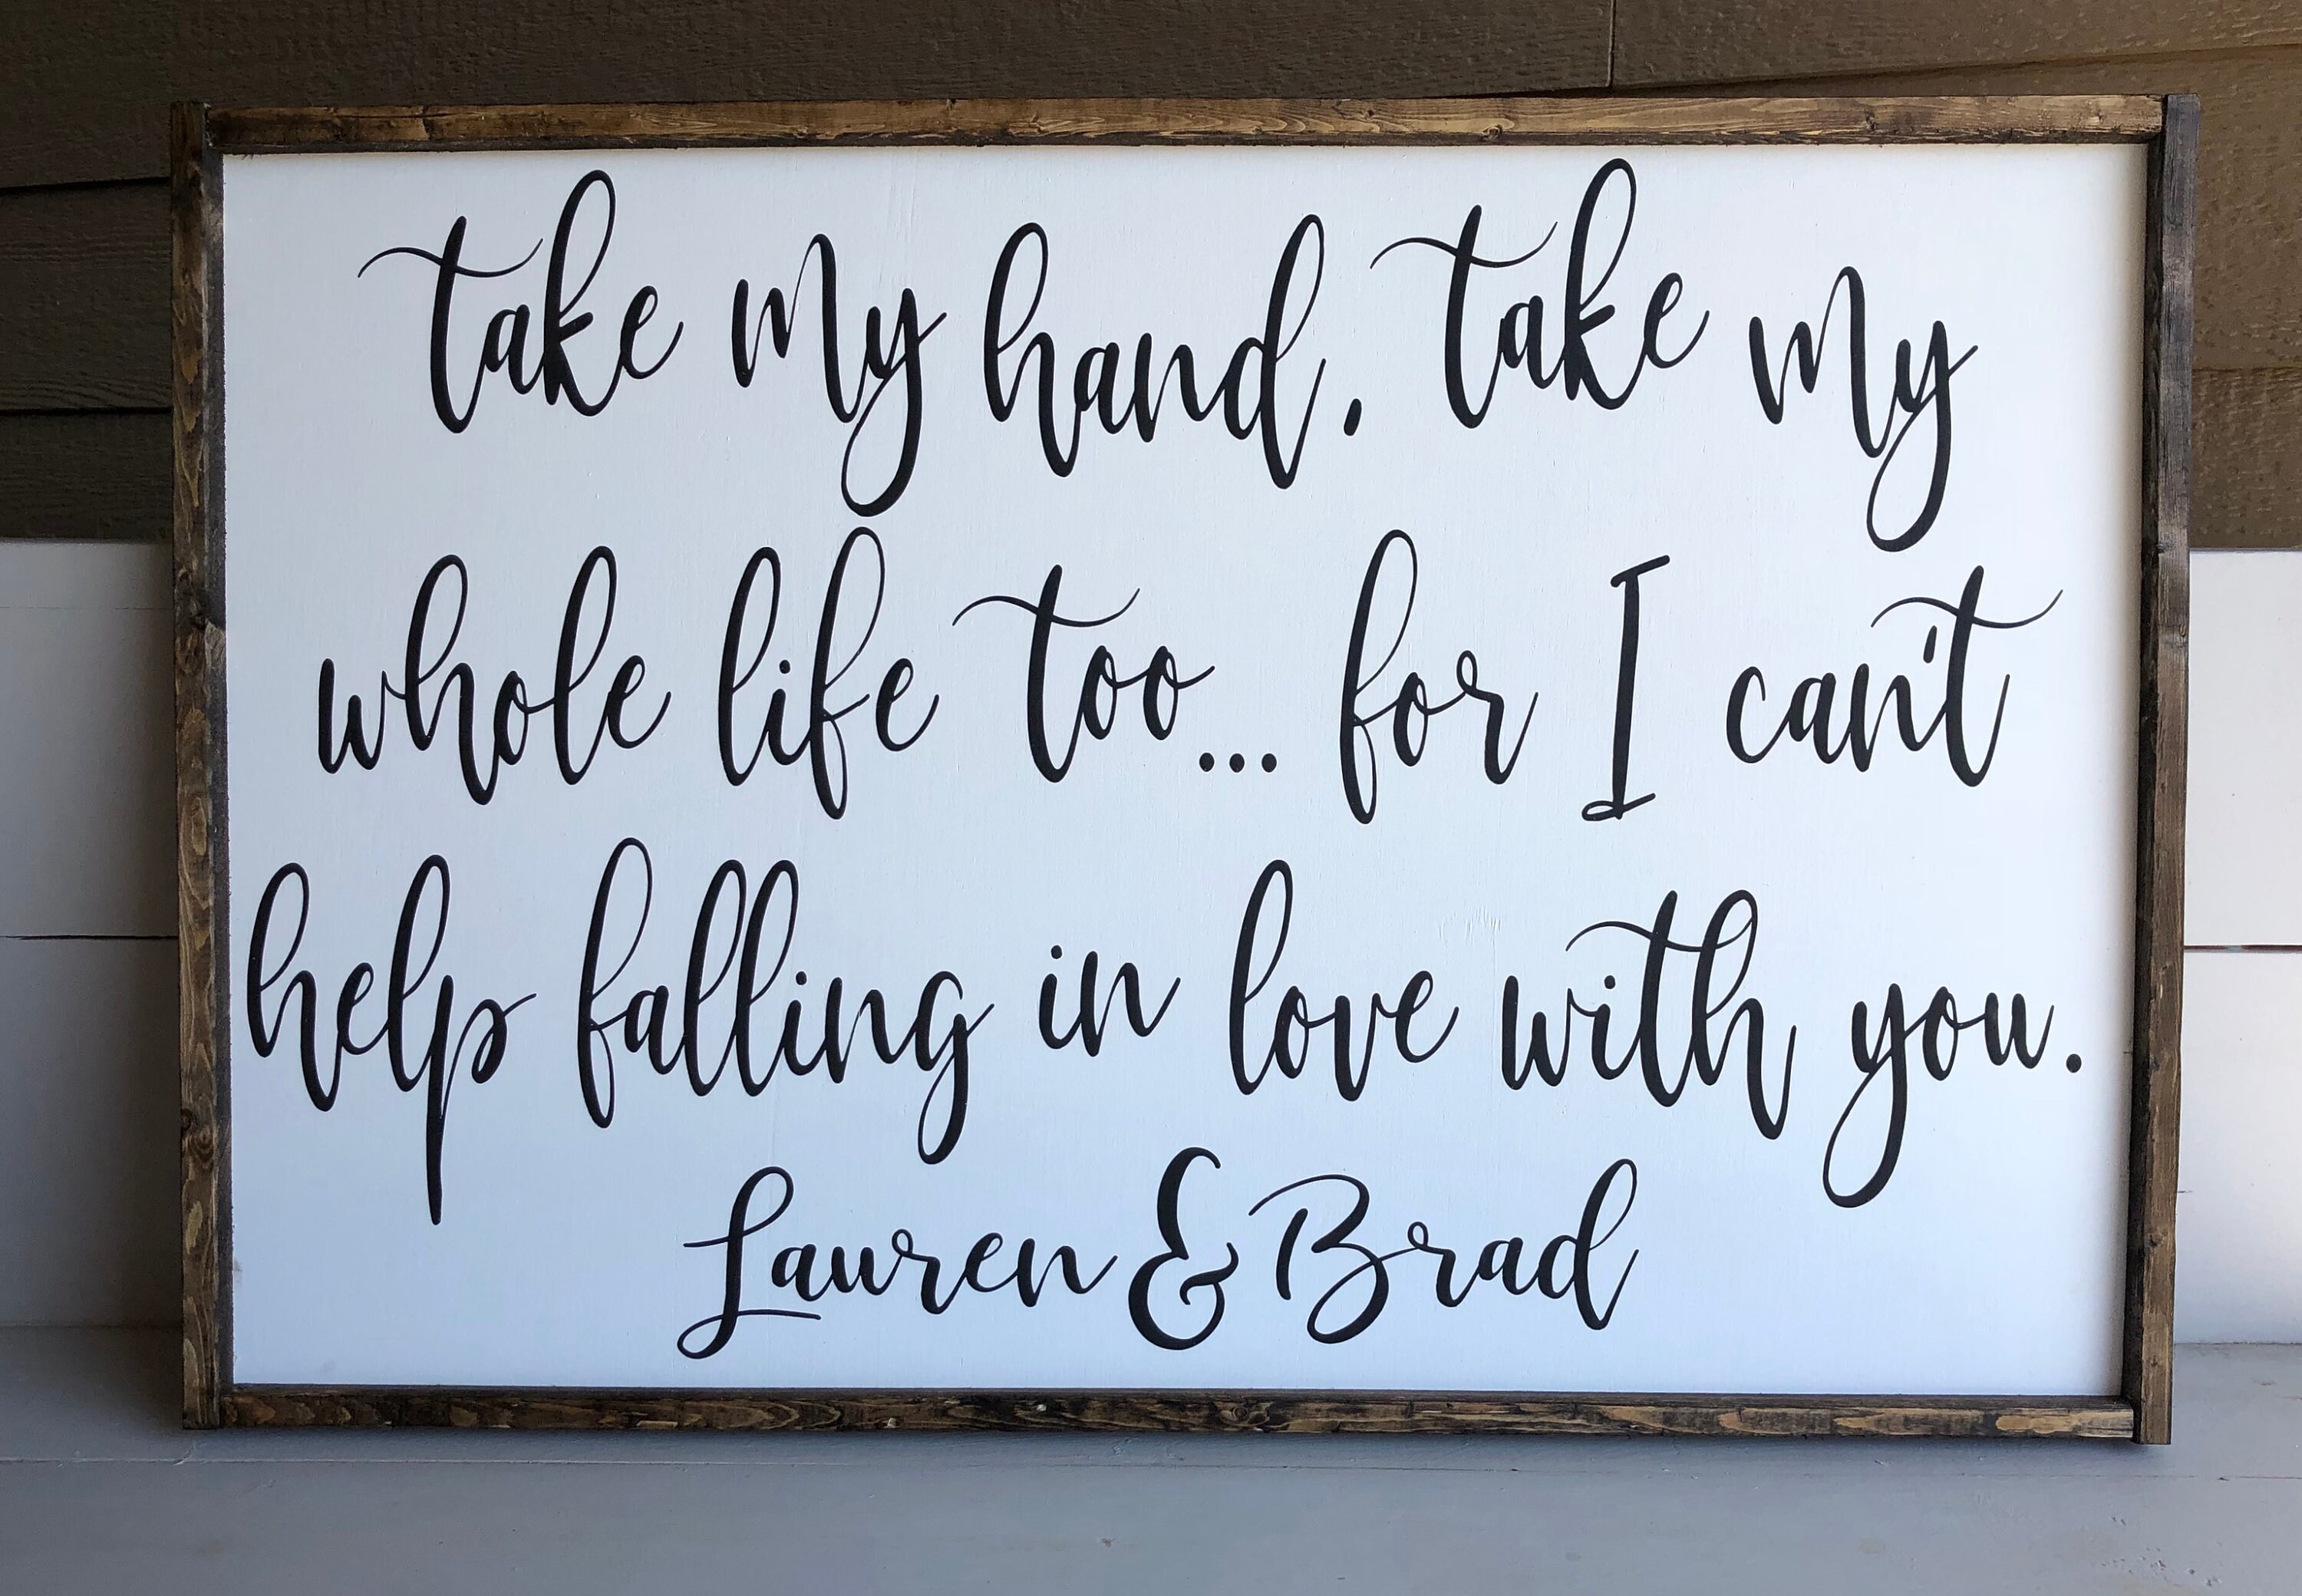 take my hand. take my
whole life too... for I can't
help falling in love with you.
Lauren & Brad